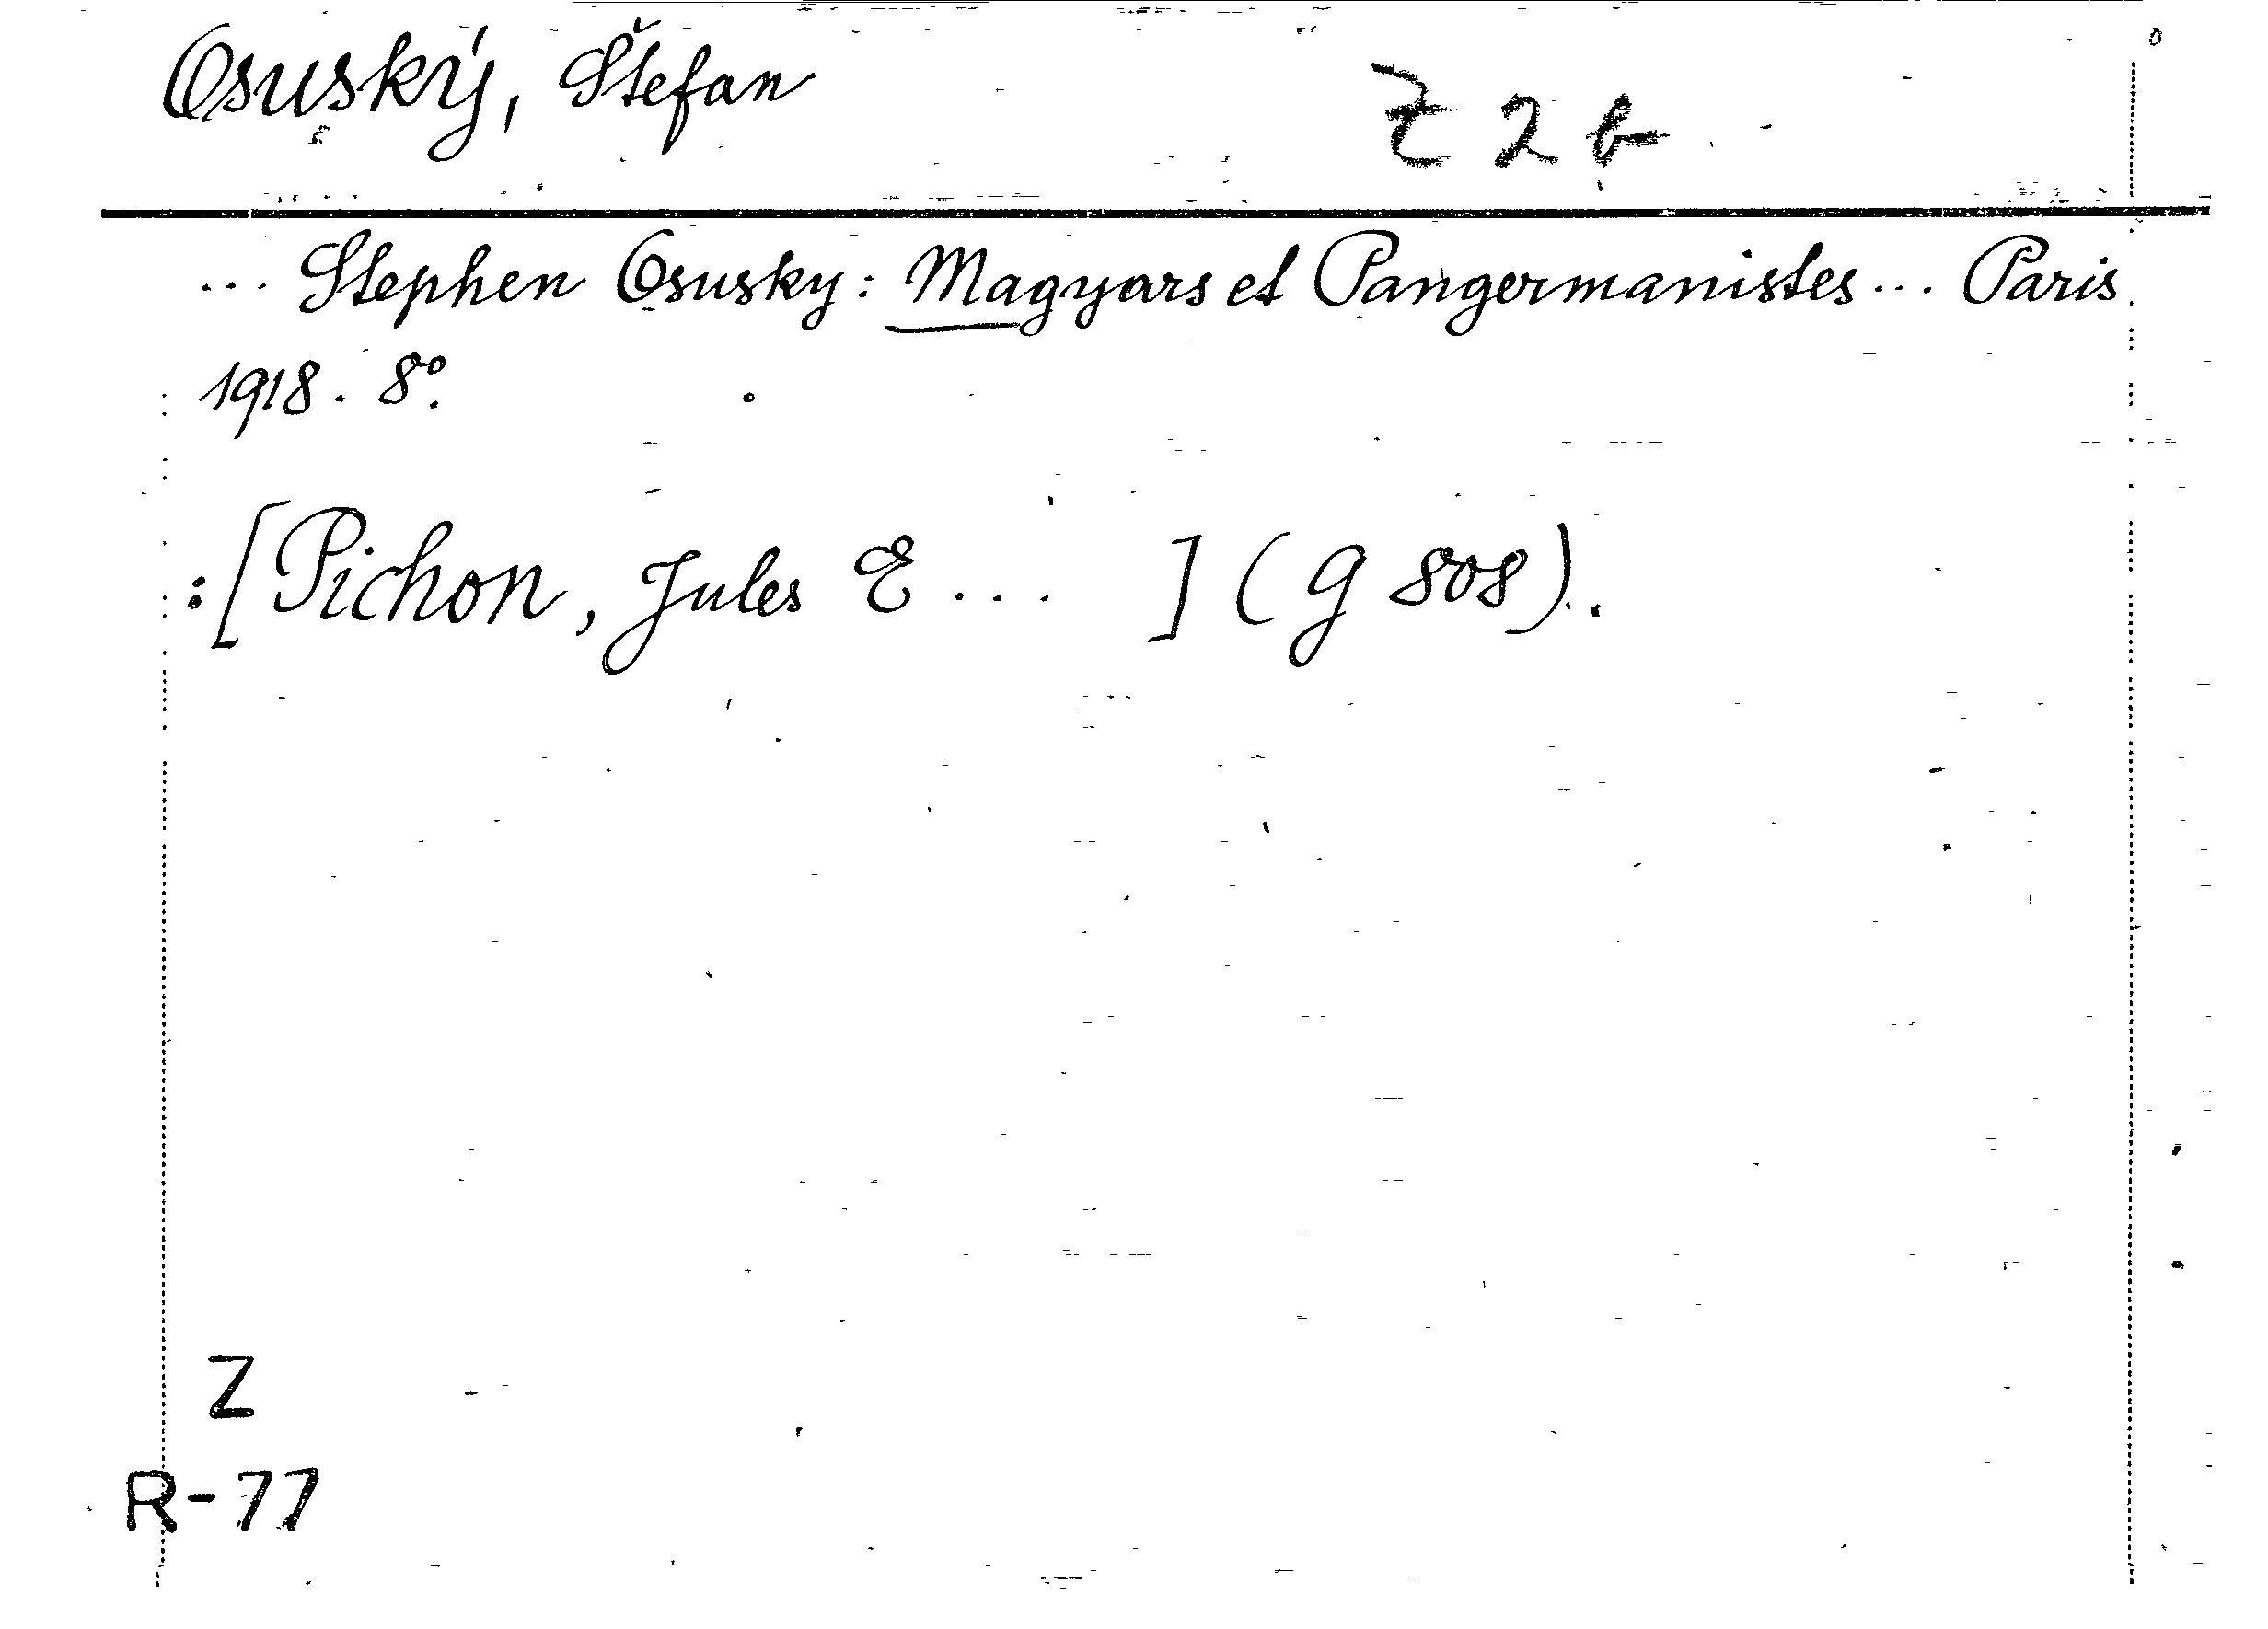 Osuský, Štefan
Z 2 b
... Stephen Osusky: Magyars et Pangermanistes ... Paris
1918. 8°.
:[Pichon, Jules E ... ] (g 808).
Z
R-77